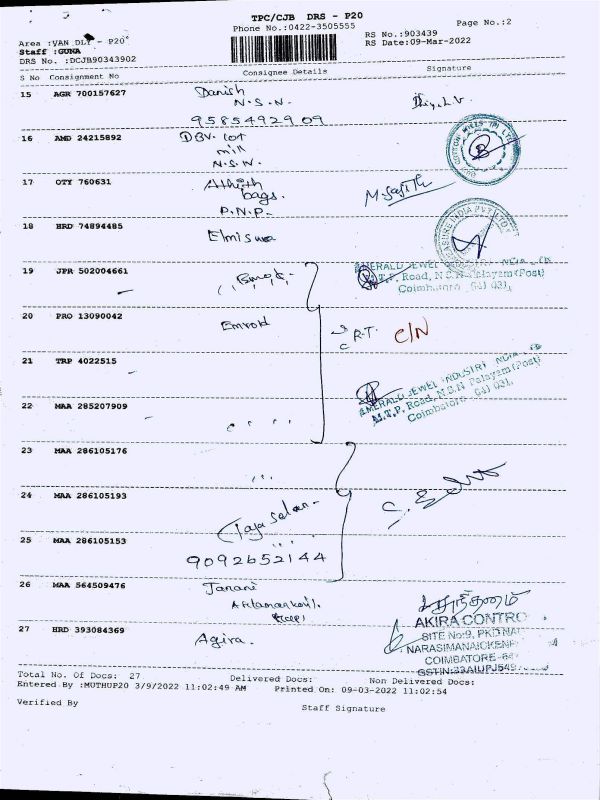 TPC/CJB DRS - P20
Phone No.:0422-3505555
Page No.:2
Area :VAN DLY - P20
RS No.:903439
Staff :GUNA
RS Date:09-Mar-2022
DRS No. :DCJB90343902
S No Consignment No Consignee Details Signature
15 AGR 700157627 Danish
N.S.N.
9585492909
16 AMD 24215892 DBV. Cot
mill
N.S.N.
COTTON MILLS (IN) LTD
17 OTY 760631 Athith
bags.
P.N.P.
18 HRD 74894485
INDIA PVT LTD
19 JPR 502004661
EMERALD JEWEL INDUSTRY INDIA
M.T.P. Road, N.S.N Palayam (Post)
Coimbatore 641 031.
20 PRO 13090042
R.T. C/N
21 TRP 4022515
EMERALD JEWEL INDUSTRY INDIA
M.T.P. Road, N.S.N Palayam (Post)
Coimbatore 641 031.
22 MAA 285207909
23 MAA 286105176
24 MAA 286105193
25 MAA 286105153
9092652144
26 MAA 564509476 Janani
27 HRD 393084369 Agira.
AKIRA CONTRO
SITE No:9,
NARASIMANAICKENP
COIMBATORE-64
Total No. Of Docs: 27 Delivered Docs: Non Delivered Docs:
Entered By :MUTHUP20 3/9/2022 11:02:49 AM Printed On: 09-03-2022 11:02:54
Verified By
Staff Signature